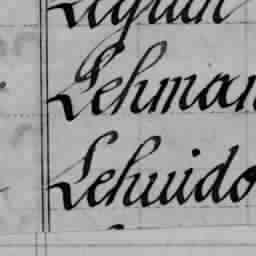 Lehman
Lehuido